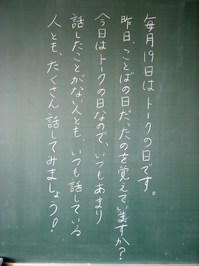 毎月19日はトークの日です。
昨日、ことばの日だったのを覚えていますか？
今日はトークの日なので、いつもあまり
話したことがない人とも、いつも話している
人とも、たくさん話してみましょう！